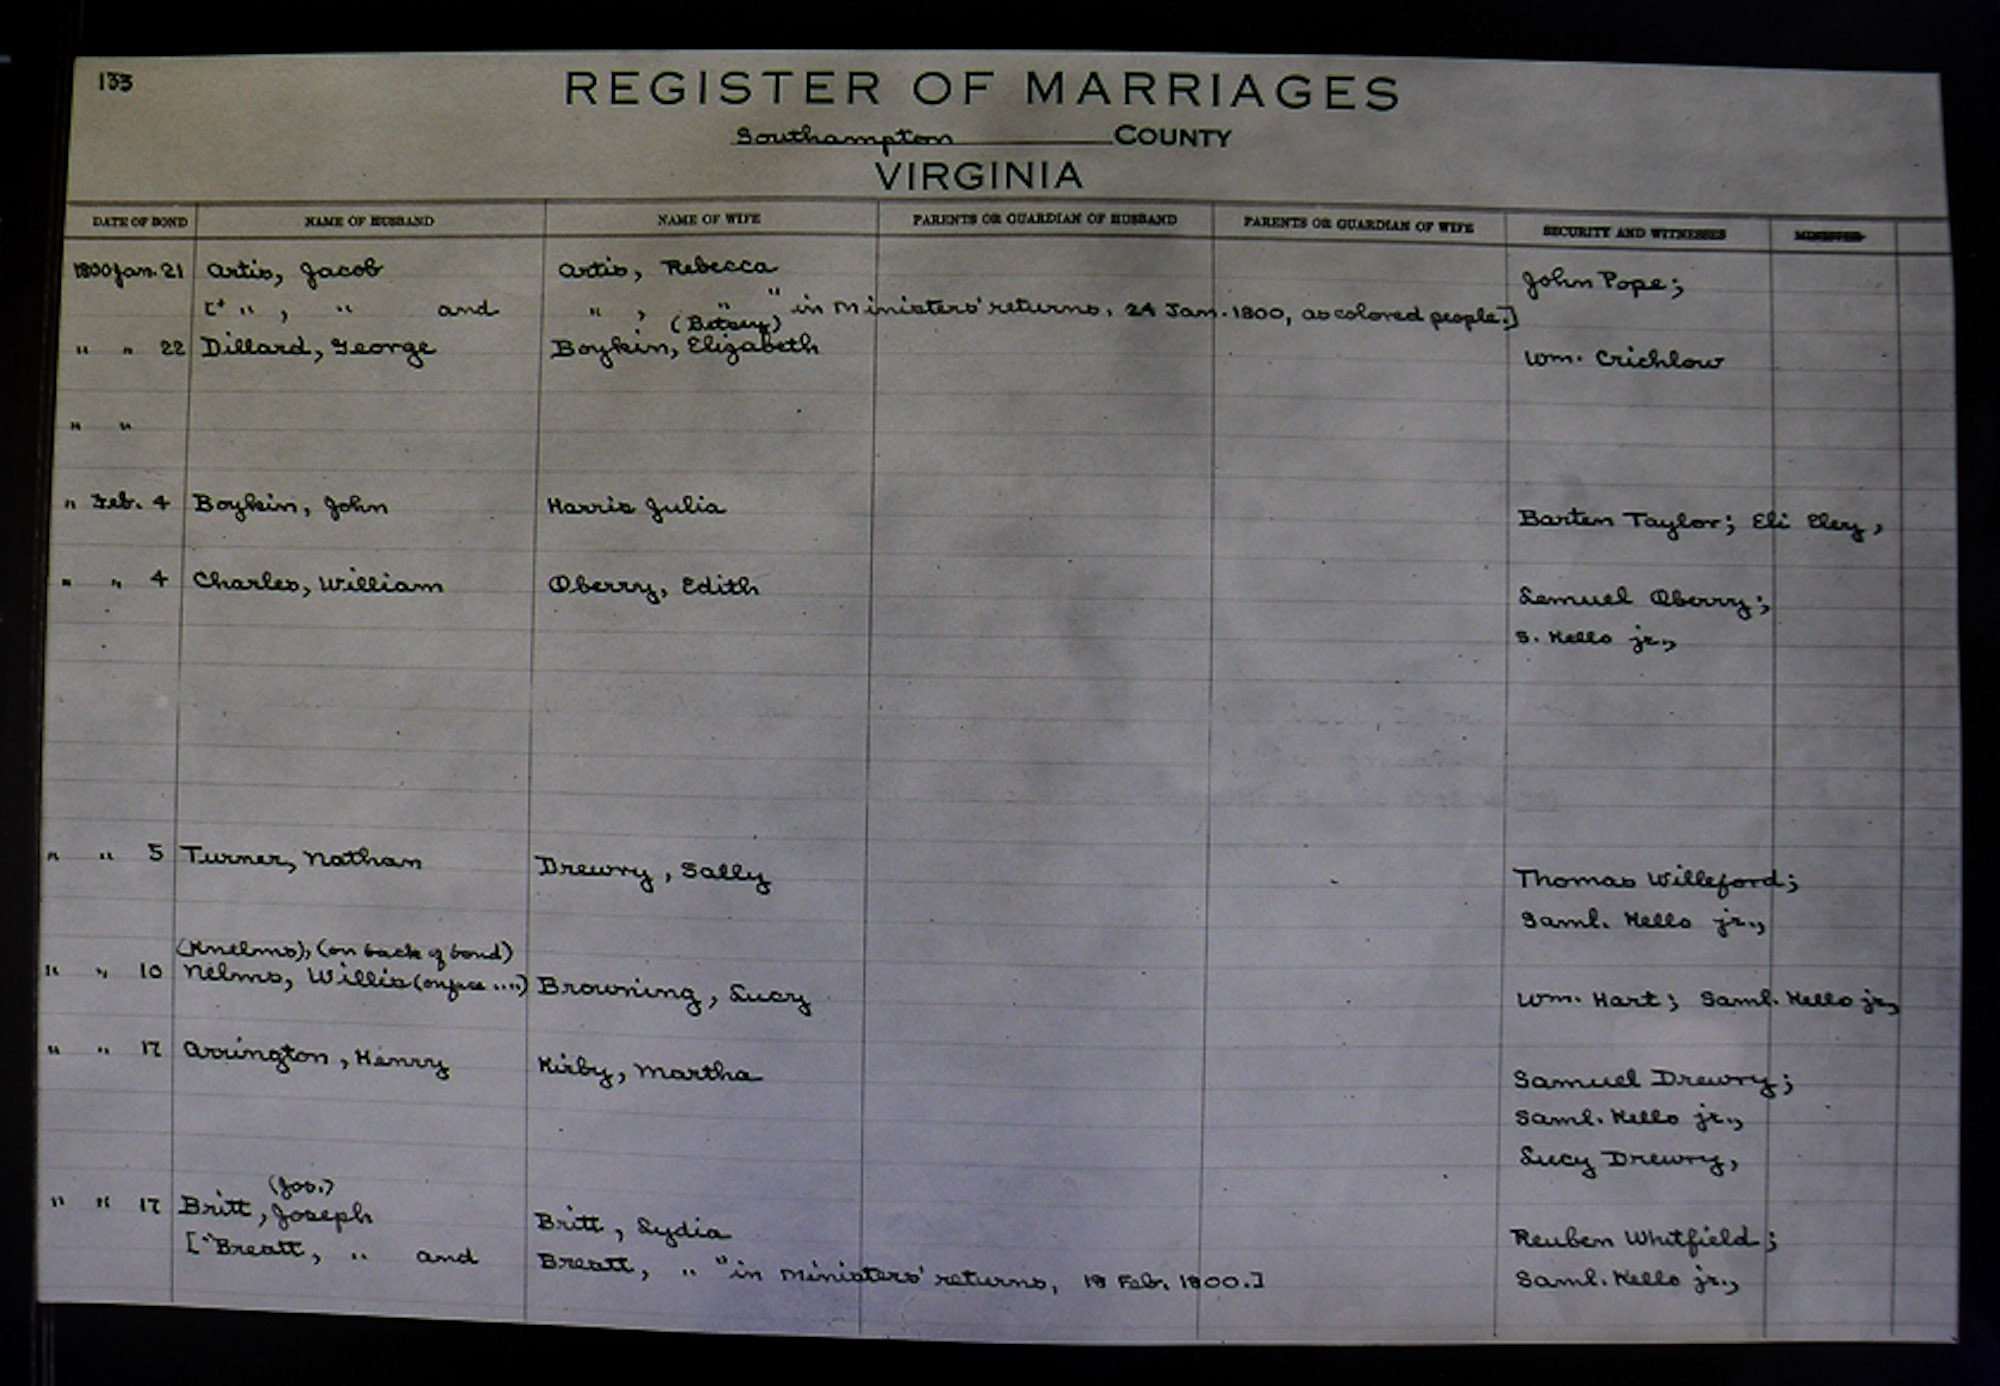 133
REGISTER OF MARRIAGES
Southampton COUNTY
VIRGINIA
DATE OF BOND NAME OF HUSBAND NAME OF WIFE PARENTS OR GUARDIAN OF HUSBAND PARENTS OR GUARDIAN OF WIFE SECURITY AND WITNESSES MINISTER
1800 Jan. 21 Artis, Jacob Artis, Rebecca John Pope;
[" " , " and " , " " in Ministers' returns, 24 Jan. 1800, as colored people.]
(Betsey)
" " 22 Dillard, George Boykin, Elizabeth Wm. Crichlow
" "
" Feb. 4 Boykin, John Harris Julia Barten Taylor; Eli Eley,
" " 4 Charles, William Oberry, Edith Lemuel Oberry;
S. Kello jr.,
" " 5 Turner, Nathan Drewry, Sally Thomas Willeford;
Saml. Kello jr.,
(Knelms), (on back of bond)
" " 10 Nelms, Willis (on face " ") Browning, Lucy Wm. Hart; Saml. Kello jr,
" " 17 Arrington, Henry Kirby, Martha Samuel Drewry;
Saml. Kello jr.,
Lucy Drewry,
(Jos.)
" " 17 Britt, Joseph Britt, Lydia Reuben Whitfield;
["Breatt, " and Breatt, " " in Ministers' returns, 18 Feb. 1800.] Saml. Kello jr.,